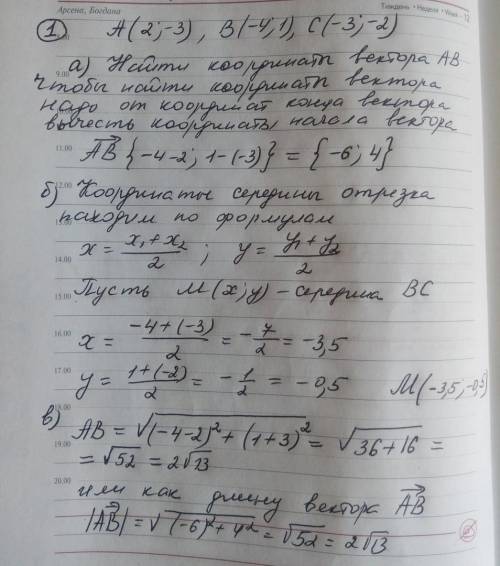 Арсена, Богдана
Тиждень • Неделя • Week – 12
① A(2;-3), B(-4;1), C(-3;-2)
9.00
а) Найти координаты вектора AB
Чтобы найти координаты вектора
надо от координат конца вектора
вычесть координаты начала вектора
11.00
AB⃗ {-4-2; 1-(-3)} = {-6; 4}
12.00
б) Координаты середины отрезка
находим по формулам
x = (x₁+x₂)/2 ; y = (y₁+y₂)/2
14.00
Пусть M(x;y) – середина BC
15.00
16.00
x = (-4+(-3))/2 = -7/2 = -3,5
17.00
y = (1+(-2))/2 = -1/2 = -0,5 M(-3,5; -0,5)
18.00
в)
AB = √((-4-2)²+(1+3)²) = √(36+16) =
19.00
= √52 = 2√13
20.00
или как длину вектора AB⃗
|AB⃗| = √((-6)²+4²) = √52 = 2√13